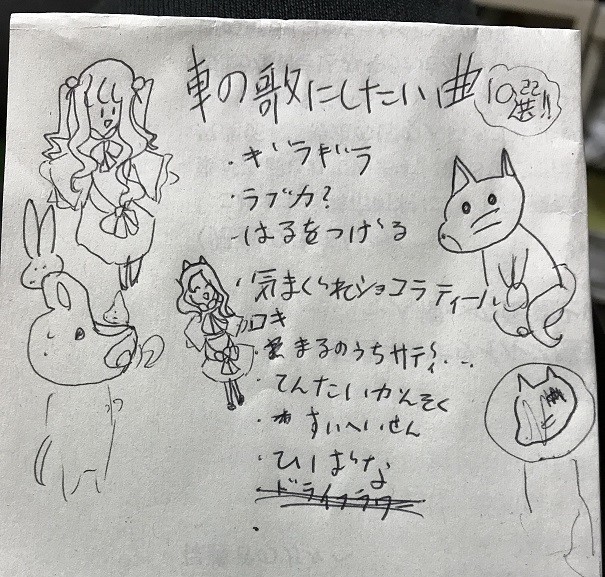 車の歌にしたい曲
10選!!
・ギラギラ
・ラブカ?
・はるをつげる
・気まぐれショコラティール
ロキ
・まるのうちサディ...
・てんたいかんそく
・すいへいせん
・ひばな
ドライフラワー